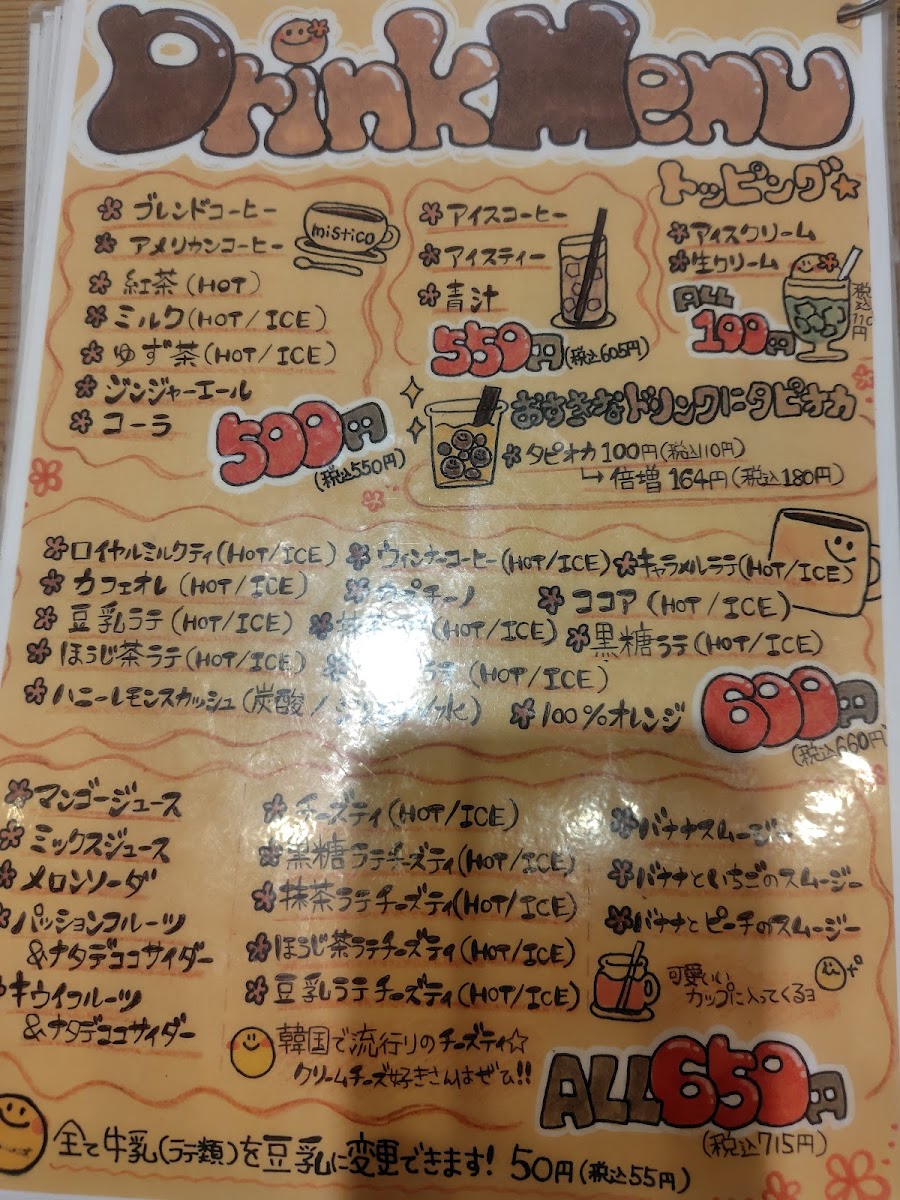 Drink Menu
ブレンドコーヒー
アメリカンコーヒー
紅茶(HOT)
ミルク(HOT/ICE)
ゆず茶(HOT/ICE)
ジンジャーエール
コーラ
mistico
500円
(税込550円)
アイスコーヒー
アイスティー
青汁
550円(税込605円)
トッピング☆
アイスクリーム
生クリーム
ALL
100円
税込110円
おすきなドリンクにタピオカ
タピオカ 100円(税込110円)
↳倍増 164円(税込180円)
ロイヤルミルクティ(HOT/ICE) ウィンナーコーヒー(HOT/ICE) キャラメルラテ(HOT/ICE)
カフェオレ(HOT/ICE) カプチーノ ココア(HOT/ICE)
豆乳ラテ(HOT/ICE) 抹 (HOT/ICE) 黒糖ラテ(HOT/ICE)
ほうじ茶ラテ(HOT/ICE) ラテ(HOT/ICE)
ハニーレモンスカッシュ(炭酸/ /水) 100%オレンジ
600円
(税込660円)
マンゴージュース
ミックスジュース
メロンソーダ
パッションフルーツ
&ナタデココサイダー
キウイフルーツ
&ナタデココサイダー
チーズティ(HOT/ICE)
黒糖ラテチーズティ(HOT/ICE)
抹茶ラテチーズティ(HOT/ICE)
ほうじ茶ラテチーズティ(HOT/ICE)
豆乳ラテチーズティ(HOT/ICE)
韓国で流行りのチーズティ☆
クリームチーズ好きさんはぜひ!!
バナナスムージー
バナナといちごのスムージー
バナナとピーチのスムージー
可愛いい
カップに入ってくるヨ
ALL650円
(税込715円)
全て牛乳(ラテ類)を豆乳に変更できます! 50円(税込55円)